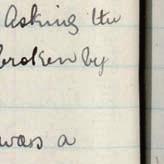 Asking the
broken by
was a